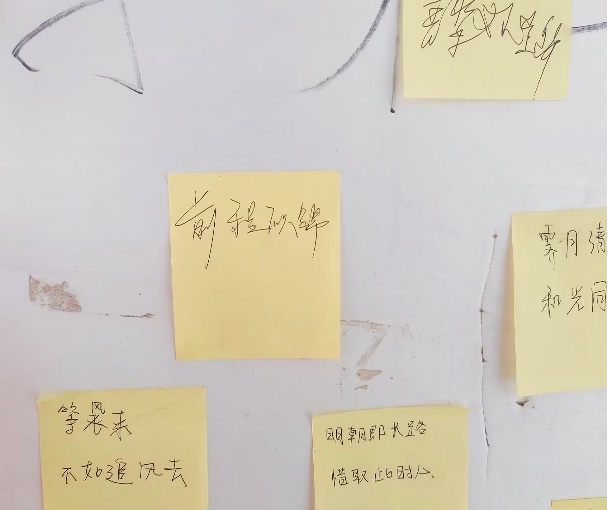 前程似锦
霁月清
和光同
等风来
不如追风去
明朝即长路
惜取此时心